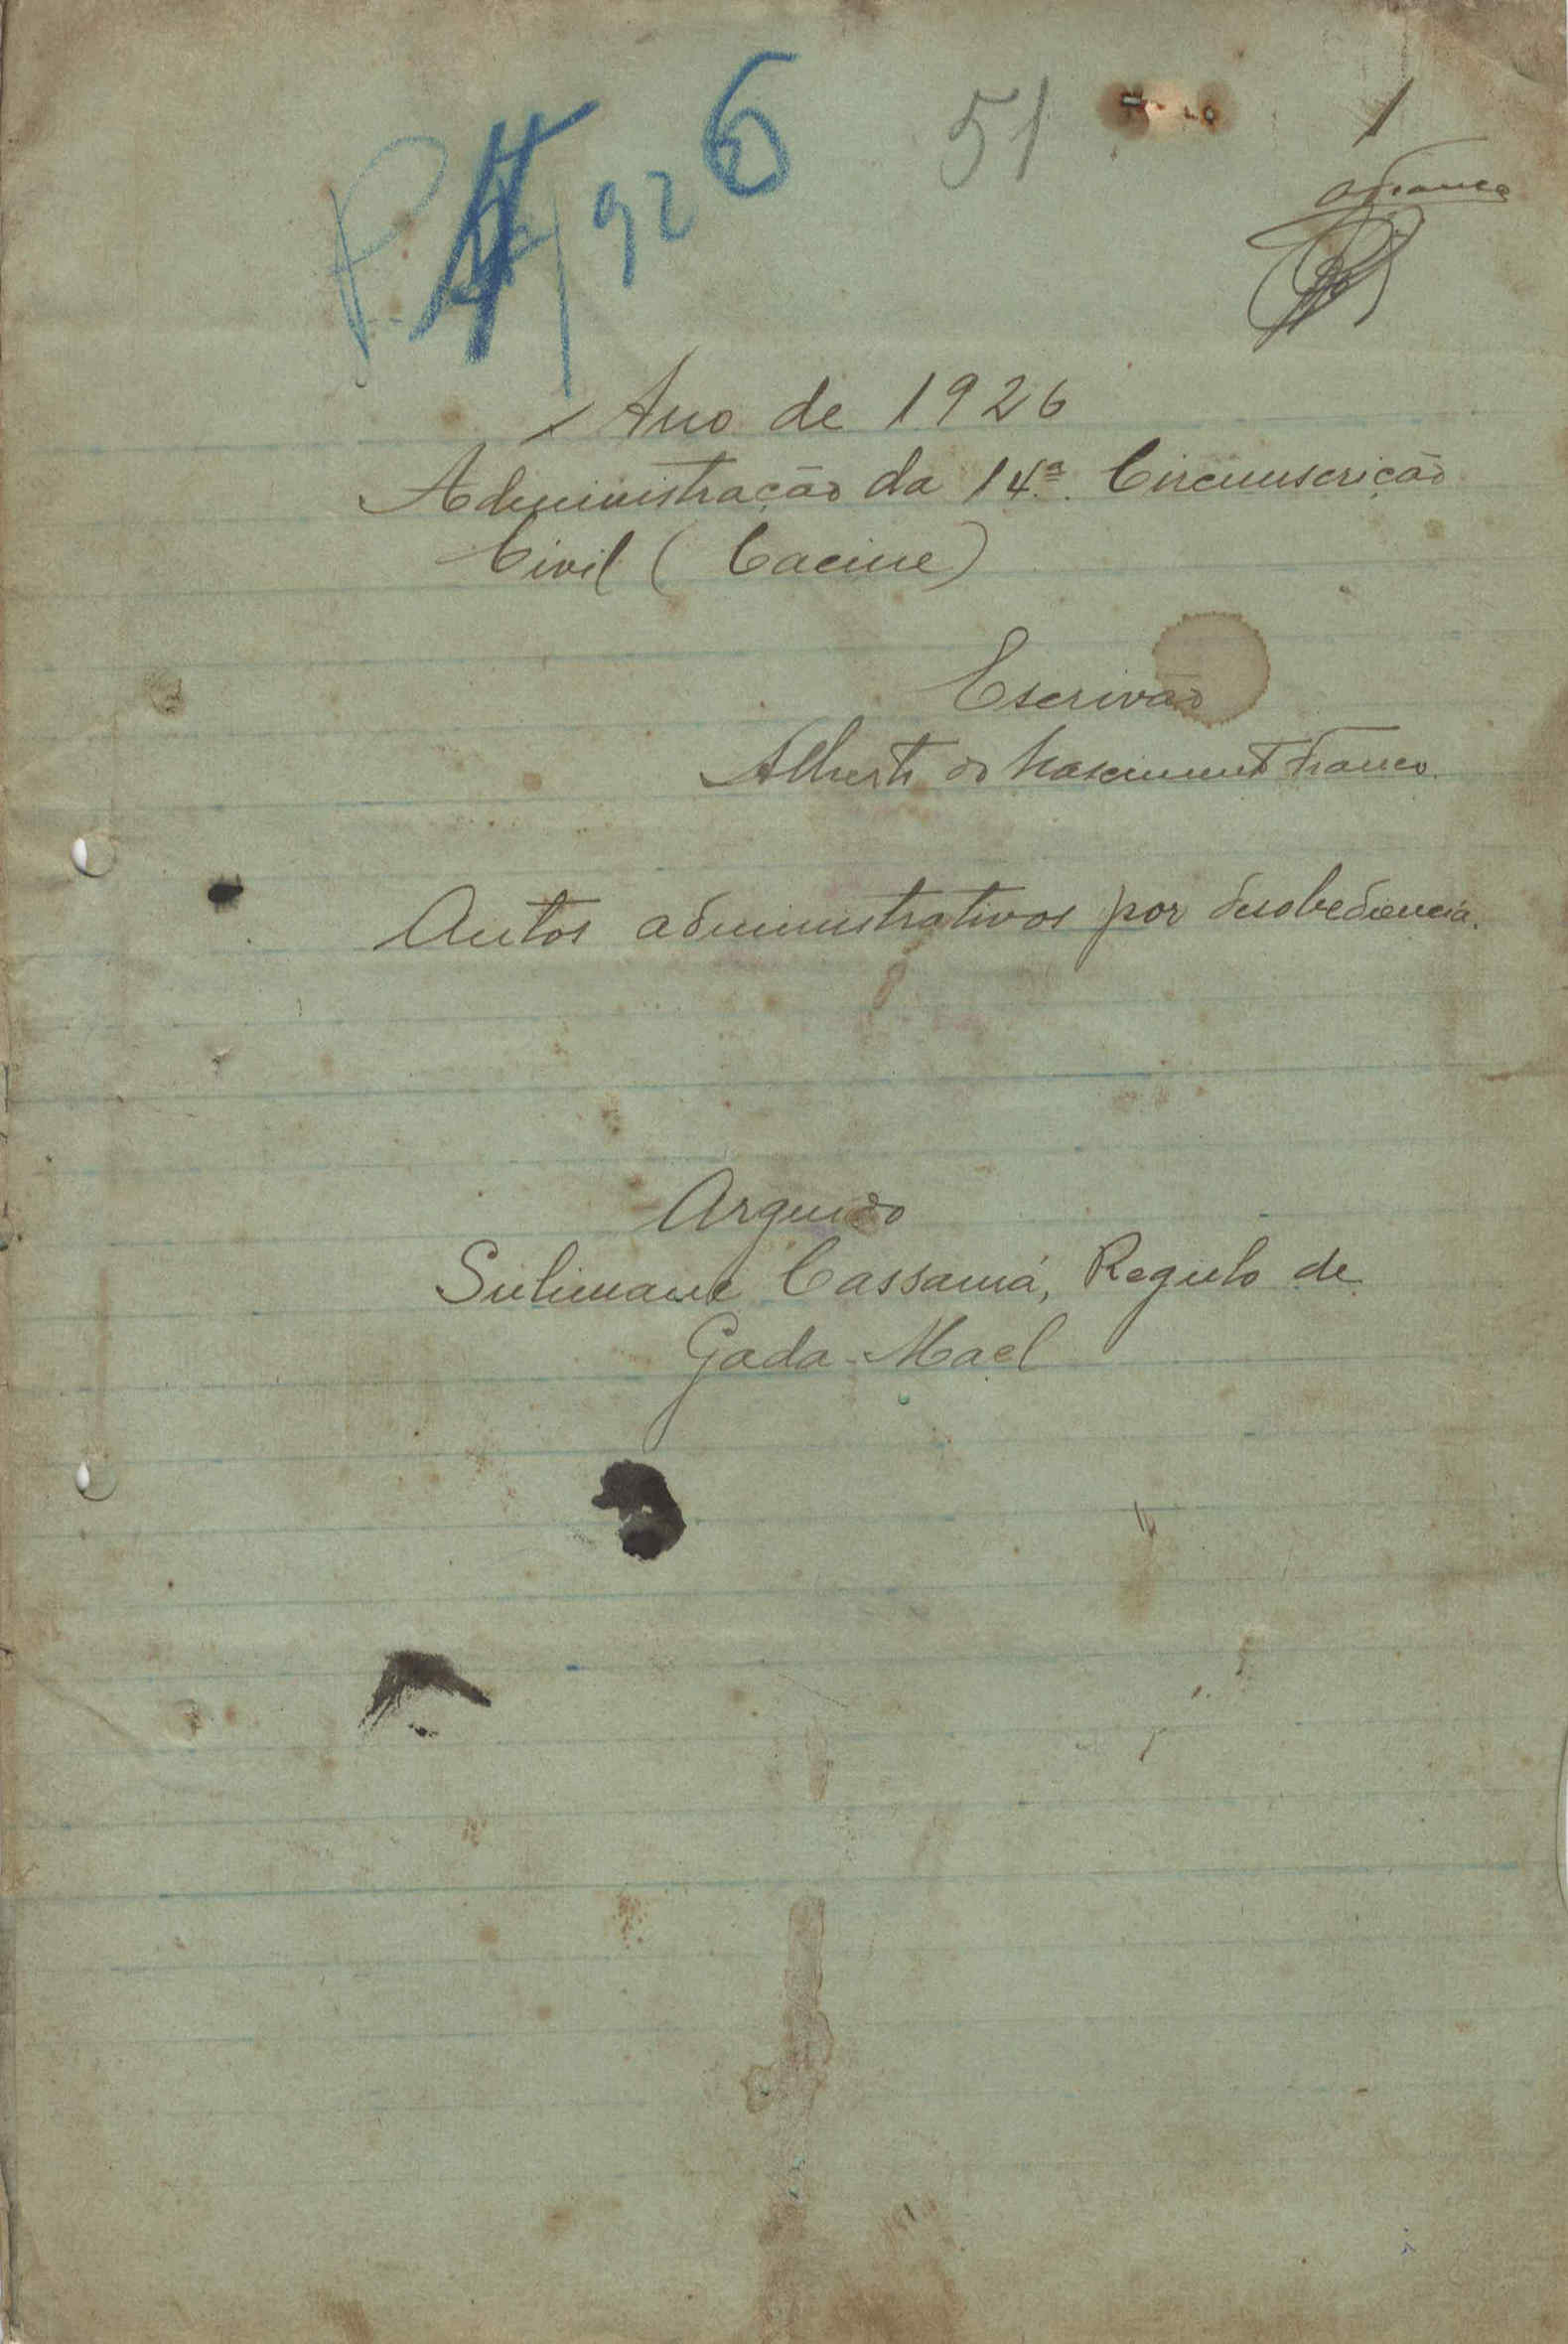 6
51
1
926
AFranco
Ano de 1926
Administração da 14ª Circunscrição
Civil (Cacine)
Escrivão
Alberto do Nascimento Franco.
Autos administrativos por desobediencia.
Arguido
Sulimane Cassamá, Regulo de
Gada-Mael